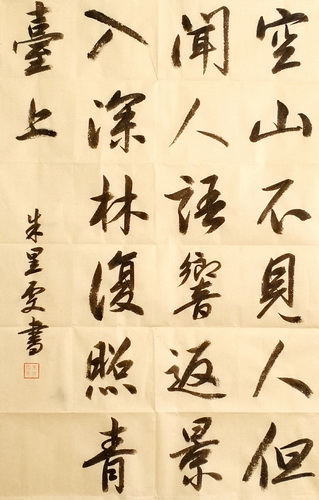 空山不見人但
聞人語響返景
入深林復照青
臺上
朱星雯書